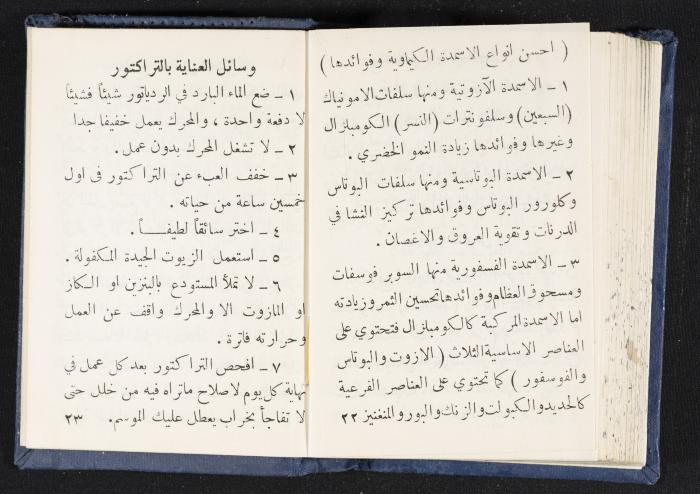 ( احسن انواع الاسمدة الكيماوية وفوائدها )
١ ــ الاسمدة الآزوتية ومنها سلفات الامونياك
(السبعين) وسلفونترات (النسر) الكومبلزال
وغيرها وفوائدها زيادة النمو الخضري .
٢ ــ الاسمدة البوتاسية ومنها سلفات البوتاس
وكلورور البوتاس وفوائدها تركيز النشا في
الدرنات وتقوية العروق والاغصان .
٣ ــ الاسمدة الفسفورية منها السوبر فوسفات
ومسحوق العظام وفوائدها تحسين الثمر وزيادته
اما الاسمدة المركبة كالكومبلزال فتحتوي على
العناصر الاساسية الثلاث ( الازوت والبوتاس
والفوسفور ) كما تحتوي على العناصر الفرعية
كالحديد والكبولت والزنك والبور والمنغنيز ٢٢
وسائل العناية بالتراكتور
١ ــ ضع الماء البارد في الردياتور شيئاً فشيئاً
لا دفعة واحدة ، والمحرك يعمل خفيفا جدا
٢ ــ لا تشغل المحرك بدون عمل .
٣ ــ خفف العبء عن التراكتور في اول
خمسين ساعة من حياته .
٤ ــ اختر سائقاً لطيفـــاً .
٥ ــ استعمل الزيوت الجيدة المكفولة .
٦ ــ لا تملأ المستودع بالبنزين او الكاز
او المازوت الا والمحرك واقف عن العمل
وحرارته فاترة .
٧ ــ افحص التراكتور بعد كل عمل في
نهاية كل يوم لاصلاح ماتراه فيه من خلل حتى
لا تفاجأ بخراب يعطل عليك الموسم. ٢٣